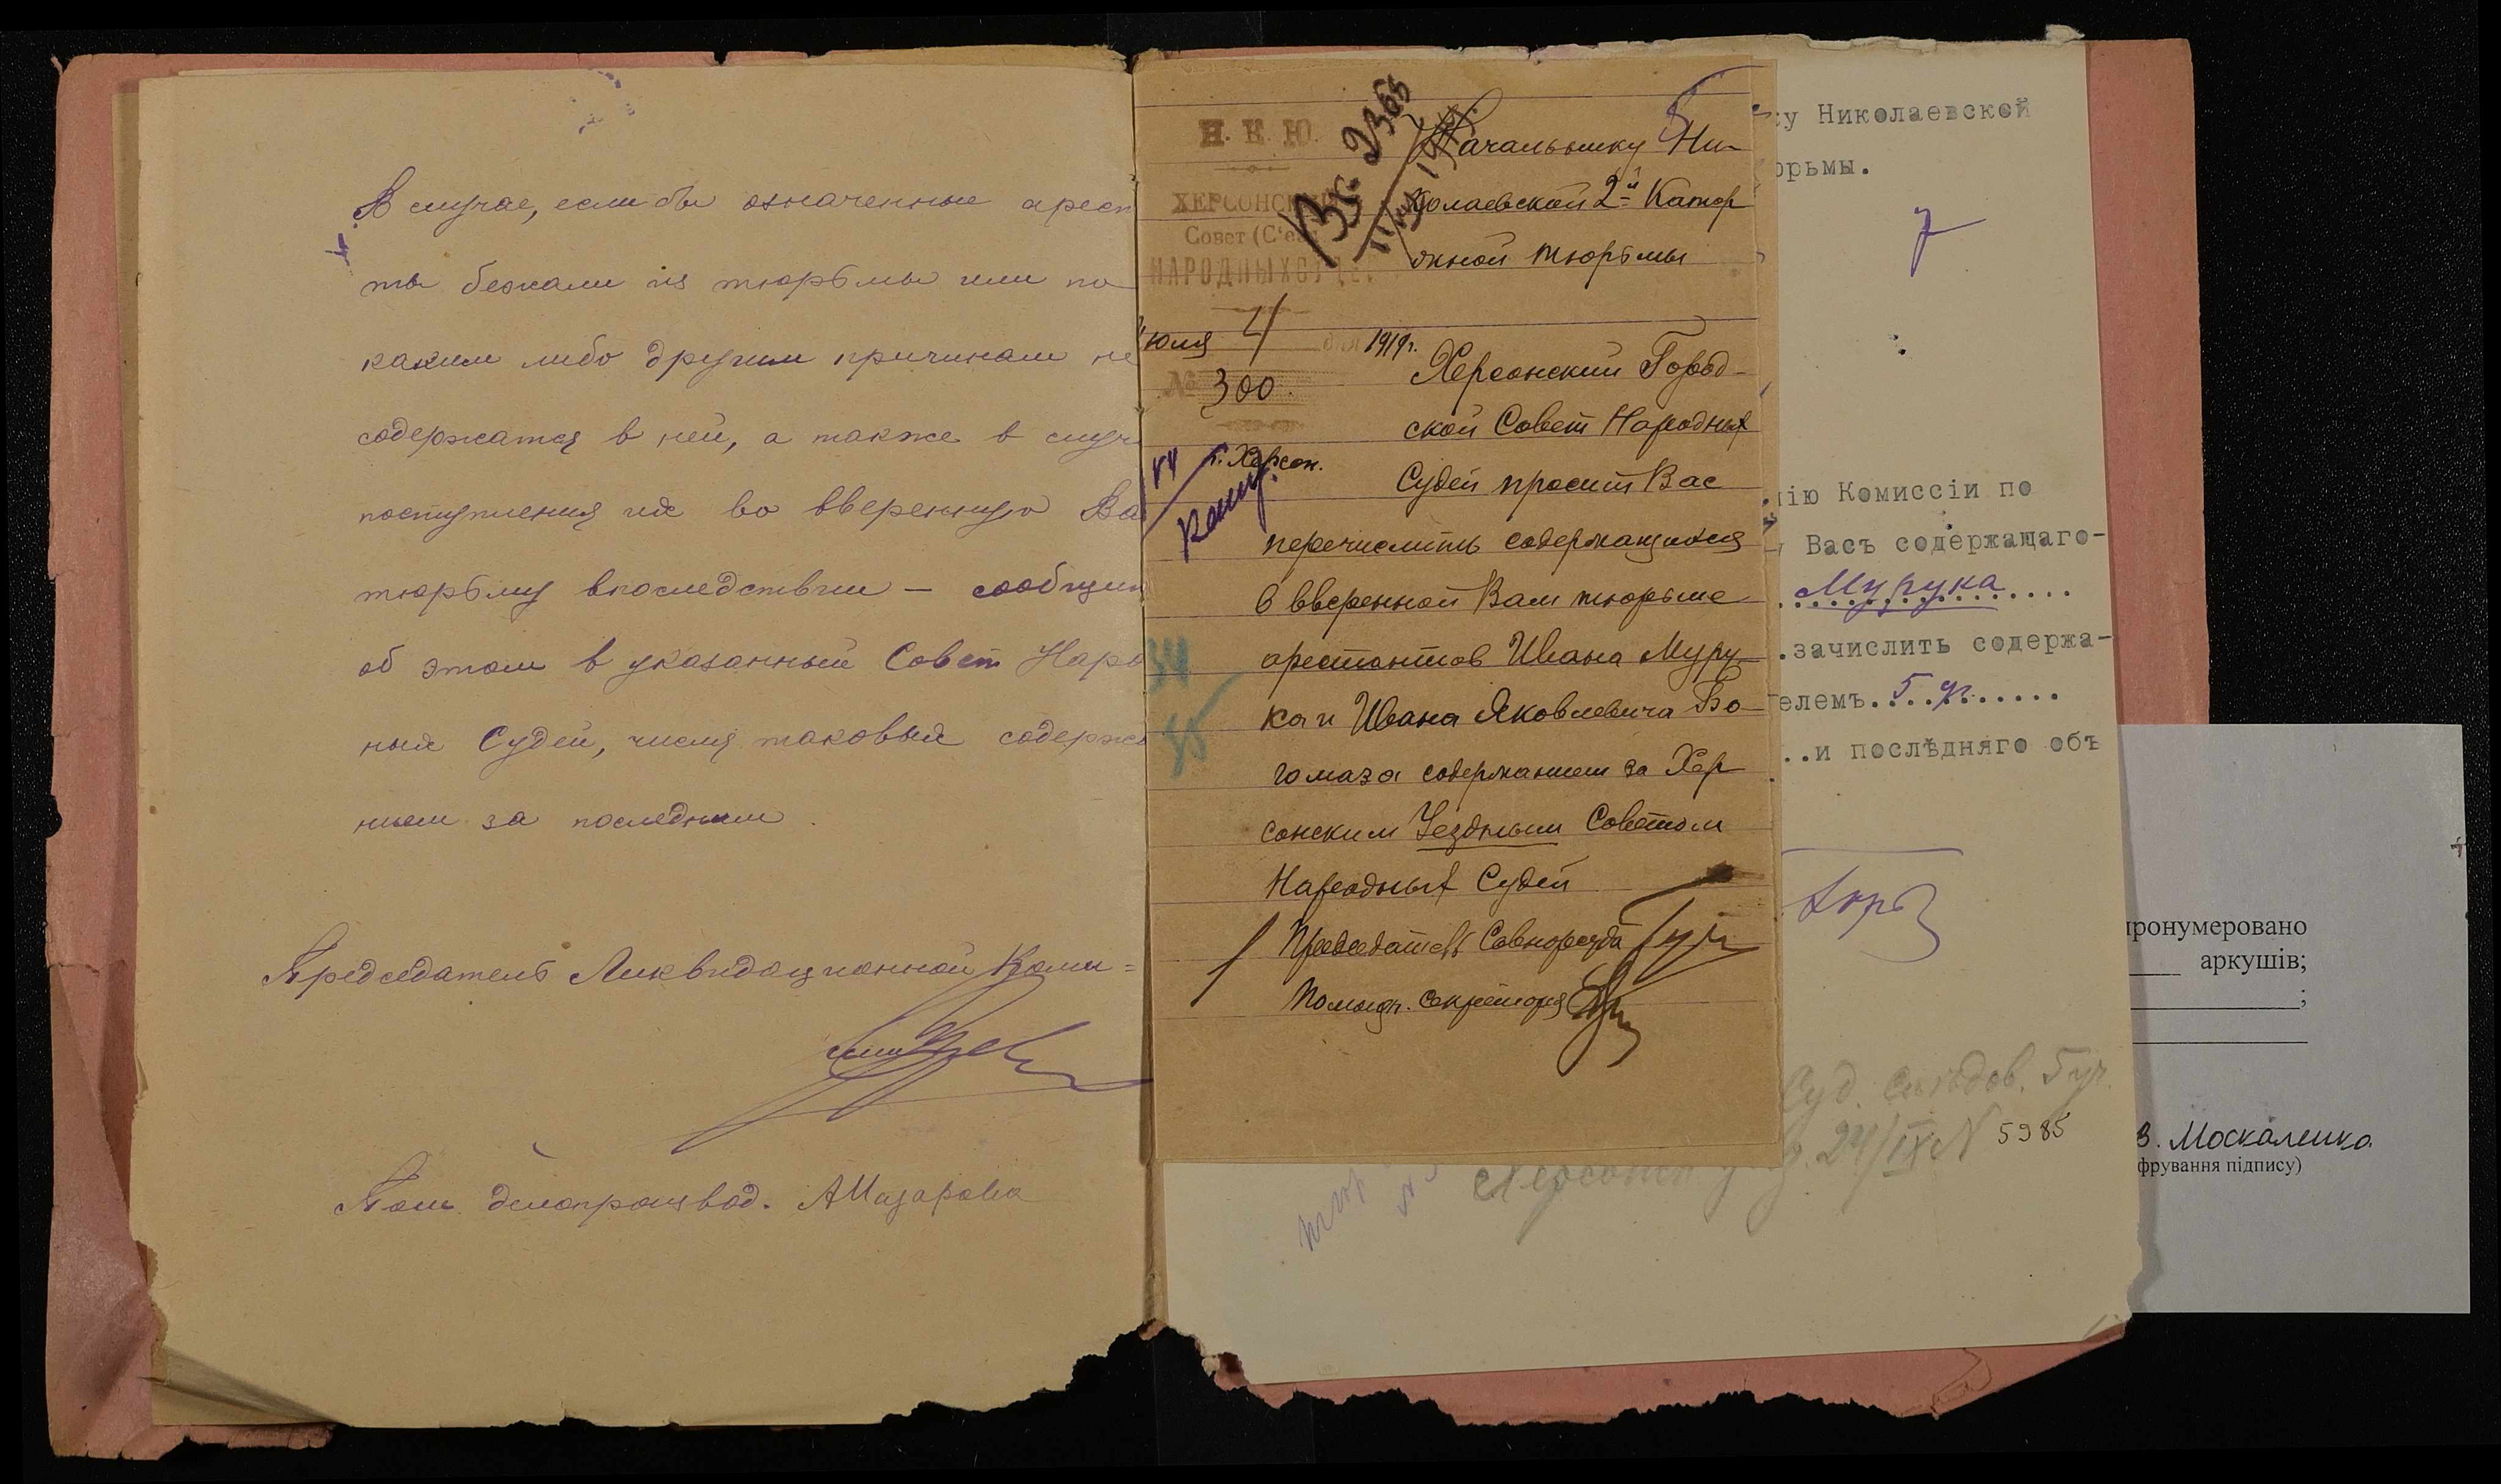 В случае, если бы означенные арест
ты бежали из тюрьмы или по
каким либо другим причинам не
содержатся в ней, а также в случ
поступления их во вверенную Ва
тюрьму впоследствии — сообщит
об этом в указанный Совет Наро
ных Судей, числя таковых содержа
ными за последним.
Председатель Ликвидационной Коми=
Пом. делопроизвод. А Назарова
Н. К. Ю.
ХЕРСОНСКИЙ
Совет (С'езд
НАРОДНЫХ СУДЕЙ.
Июля 4 дня 1919 г.
№ 300.
г. Херсон.
Вх. 2365
Начальнику Ни-
колаевской 2й Катор
жной тюрьмы
Херсонский Город-
ской Совет Народных
Судей просит Вас
перечислить содержащихся
в вверенной Вам тюрьме
арестантов Ивана Муру-
ка и Ивана Яковлевича Бо-
гомаза содержанием за Хер
сонским Уездным Советом
Народных Судей
Председатель Совнарсуда
Помощн. секретаря
34
35
ку Николаевской
юрьмы.
нію Комиссіи по
Васъ содержащаго-
Мурука
зачислить содержа-
телемъ. 5 уч.
и послѣдняго объ
Суд. слѣдов. 5 уч.
Херсонск. у. 24/IX N 5985
пронумеровано
аркушів;
;
В. Москаленко
фрування підпису)